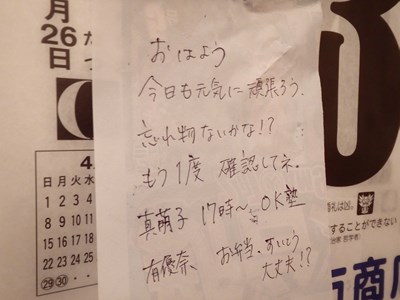 月
26
日
おはよう
今日も元気に頑張ろう、
忘れ物ないかな!?
もう1度 確認してネ。
真萌子 17時〜 OK塾
有優奈 お弁当、すいとう
大丈夫!?
4
日 月 火 水
1 2 3 4
8 9 10 11
15 16 17 18
22 23 24 25
29 30
することができない
商店